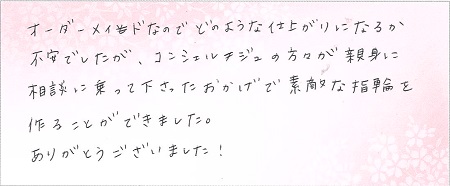 オーダーメイドなのでどのような仕上がりになるか
不安でしたが、コンシェルジュの方々が親身に
相談に乗って下さったおかげで素敵な指輪を
作ることができました。
ありがとうございました!